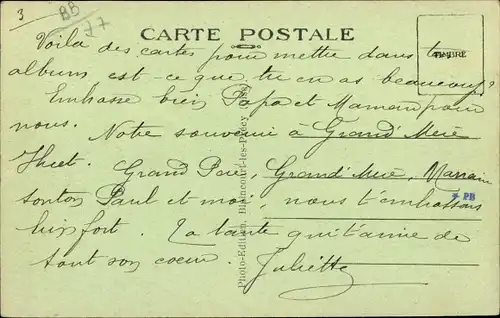 3
BB
27
CARTE POSTALE
TIMBRE
Voila des cartes pour mettre dans ton
album est-ce que tu en as beaucoup?
Embrasse bien Papa et Maman pour
nous. Notre souvenir à Grand'Mère
Huet. Grand Père, Grand'Mère, Marraine
tonton Paul et moi, nous t'embrassons
bien fort. La tante qui t'aime de
tout son coeur. Juliette
PB
Photo-Edition, Blaincourt-les-Précy